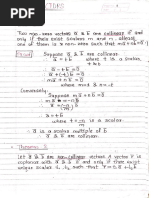 Two non-zero vectors a̅ & b̅ are collinear if and
only if there exist scalars m and n, atleast
one of them is non-zero such that ma̅+nb̅=0̅
Proof: Suppose a̅ & b̅ are collinear
where t is a scalar.
a̅ - tb̅ = 0̅
a̅ + (-t) b̅ = 0̅
Conversely,
Suppose ma̅ + nb̅ = 0̅
ma̅ = -nb̅
a̅ is a scalar multiple of b̅
a̅ & b̅ are collinear.
Theorem
a̅ & b̅ are non-collinear vectors. A vector r̅ is
coplanar with a̅ & b̅ if and only if there exist
unique scalars t₁, t₂ such that r̅ = t₁a̅ + t₂b̅